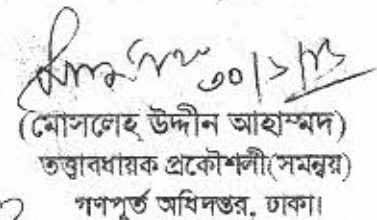 ৩০/১/১৩
(মোসলেহ্ উদ্দীন আহাম্মদ)
তত্ত্বাবধায়ক প্রকৌশলী(সমন্বয়)
গণপূর্ত অধিদপ্তর, ঢাকা।